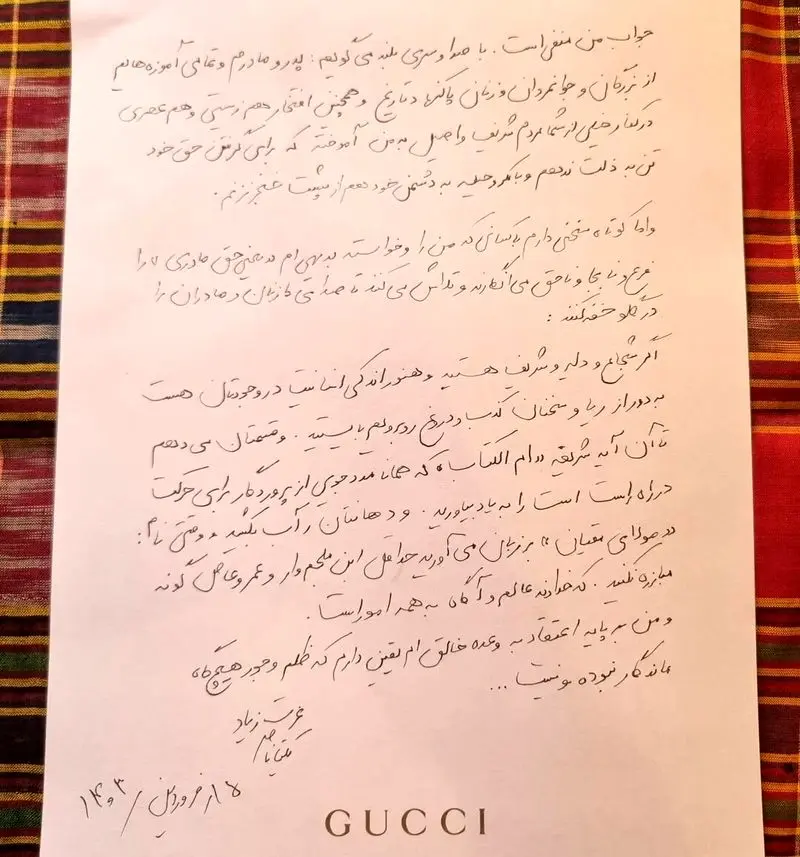 جواب من منفی است. با صدا و سری بلند می گویم: پدر و مادرم و تمامی آموزه هایم
از بزرگان و جوانمردان و زنان پاکنهاد تاریخ و همچنین افتخار هم زیستی و هم عصری
در کنار خیلی از شما مردم شریف و اصیل به من آموخته که برای گرفتن حق خود
تن به ذلت ندهم و با مکر و حیله به دشمن خود هم از پشت خنجر نزنم.
و اما کوتاه سخنی دارم با کسانی که من را و خواسته بدیهی ام «یعنی حق مادری» را
نابجا و ناحق می انگارند و تلاش می کنند تا صدای زنان و مادران را
در گلو خفه کنند:
اگر شجاع و دلیر و شریف هستید و هنوز اندکی انسانیت در وجودتان هست
به دور از ریا و سخنان کذب و دروغ روبرویم بایستید. و قسمتان می دهم
تا آن آیه شریفه «ام الکتاب» که همانا مددجویی از پروردگار برای حرکت
در راه راست است را به یاد بیاورید. و دهانتان را آب بکشید وقتی نام:
«مولای متقیان» بر زبان می آورید حداقل ابن ملجم وار و عمروعاص گونه
مبارزه نکنید. که خداوند عالم و آگاه به همه امور است.
و من بر پایه اعتقاد به وعده خالق ام یقین دارم که ظلم و جور هیچگاه
ماندگار نبوده و نیست ...
عزت زیاد
۱۵ فروردین / ۱۴۰۳
GUCCI